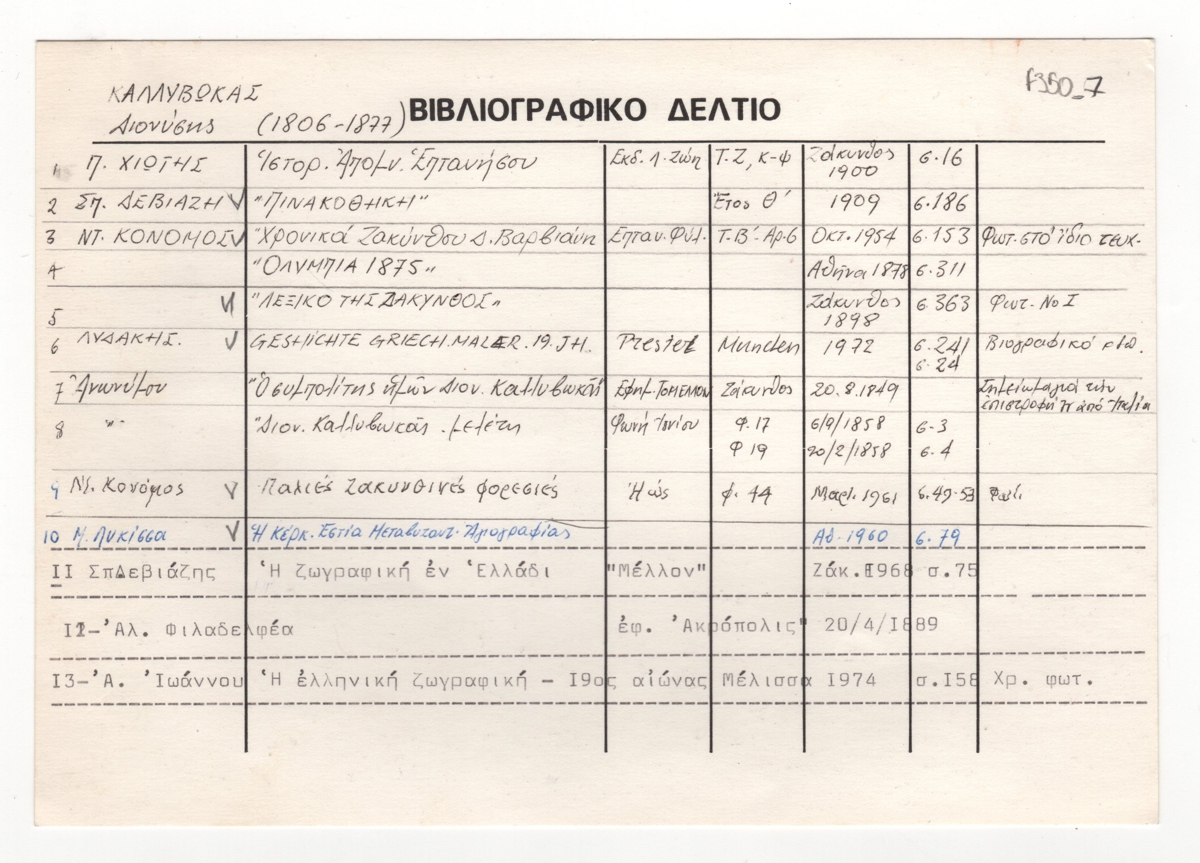 ΚΑΛΛΥΒΩΚΑΣ
Διονύσης (1806-1877) ΒΙΒΛΙΟΓΡΑΦΙΚΟ ΔΕΛΤΙΟ F350_7
1 Π. ΧΙΩΤΗΣ Ἱστορ. Ἀπομν. Ἑπτανήσου Εκδ. Λ. Ζώη Τ.Ζ, κ-φ Ζάκυνθος 1900 σ.16
2 Σπ. ΔΕΒΙΑΖΗ V "ΠΙΝΑΚΟΘΗΚΗ" Ἔτος Θ΄ 1909 σ.186
3 ΝΤ. ΚΟΝΟΜΟΣ V "Χρονικά Ζακύνθου Δ. Βαρβιάνη Επταν. Φύλ. Τ.Β΄-Αρ.6 Οκτ.1954 σ.153 Φωτ. στό ἴδιο τευχ.
4 "ΟΛΥΜΠΙΑ 1875" Ἀθήνα 1878 σ.311
5 V "ΛΕΞΙΚΟ ΤΗΣ ΖΑΚΥΝΘΟΣ" Ζάκυνθος 1898 σ.363 Φωτ. Νο Ι
6 ΛΥΔΑΚΗΣ. V GESHICHTE GRIECH. MALER. 19. JH. Prestel Munchen 1972 σ.241 Βιογραφικό
σ.24
7 Ἀνωνύμου "Ὁ συμπολίτης ἡμῶν Διον. Καλλυβωκᾶς Εφημ. Ζάκυνθος 20.8.1849 Σημείωμα γιά τήν
ἐπιστροφή ἀπό Ἰταλία
8 -"- "Διον. Καλλυβωκᾶς. μελέτη Φωνή Ἰονίου Φ.17 6/9/1858 σ-3
Φ 19 20/2/1858 σ.4
9 Ντ. Κονόμος V Παλιές Ζακυνθινές φορεσιές Ἠώς φ. 44 Μαρτ. 1961 σ.49-53 Φωτ.
10 Μ. Λυκίσσα V Ἡ Κέρκ. Εστία Μεταβυζαντ. Ἁγιογραφίας Ἀθ. 1960 σ.79
II ΣπΔεβιάζης Ἡ ζωγραφική ἐν Ἑλλάδι "Μέλλον" Ζάκ.I968 σ.75
I2-Ἀλ. Φιλαδελφέα ἐφ. Ἀκρόπολις" 20/4/I889
I3-Ἀ. Ἰωάννου Ἡ ἑλληνική ζωγραφική - I9ος αἰώνας Μέλισσα I974 σ.I58 Χρ. φωτ.